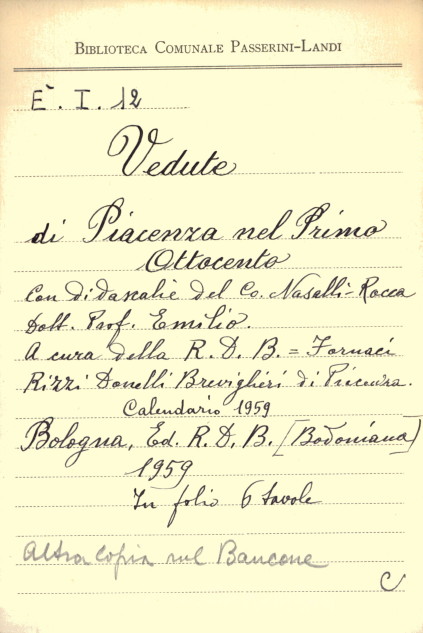 BIBLIOTECA COMUNALE PASSERINI-LANDI
E. I. 12
Vedute
di Piacenza nel Primo
Ottocento
Con didascalie del Co. Nasalli-Rocca
Dott. Prof. Emilio.
A cura della R. D. B. = Fornaci
Rizzi Donelli Breviglieri di Piacenza.
Calendario 1959
Bologna, Ed. R. D. B. [Bodoniana]
1959
In folio 6 tavole
Altra copia sul Bancone
C